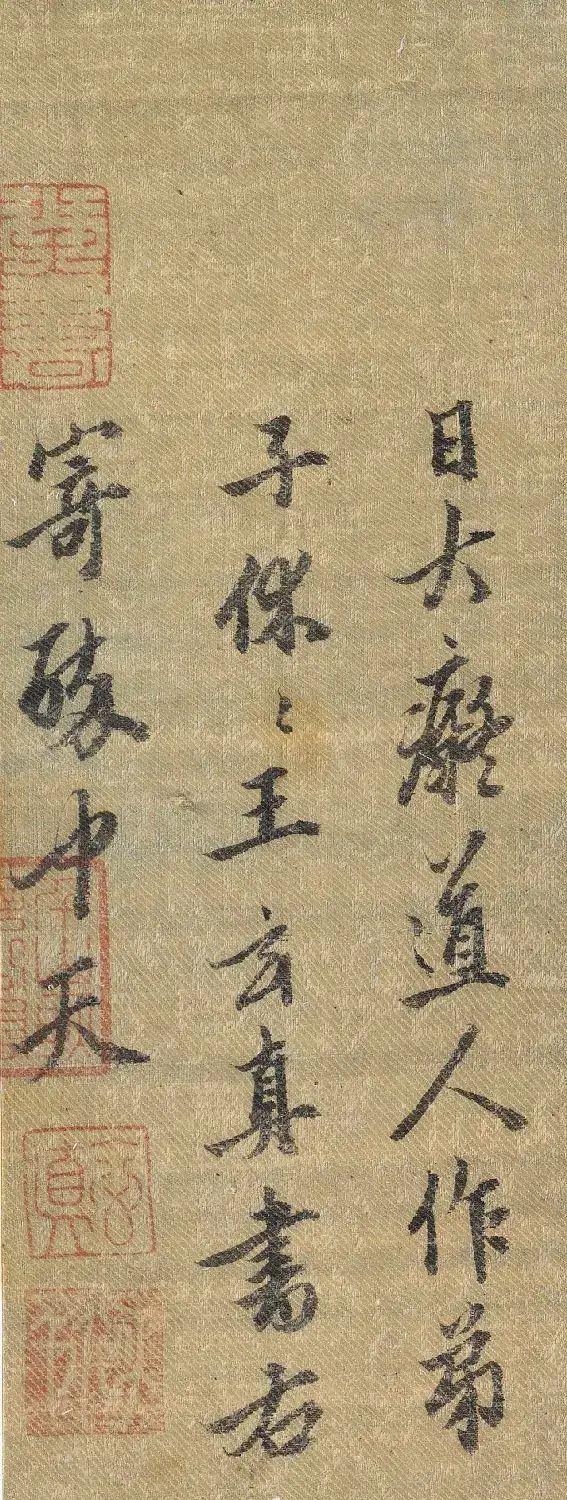 日大癡道人作弟
子保〻王玄真書右
寄醉中天